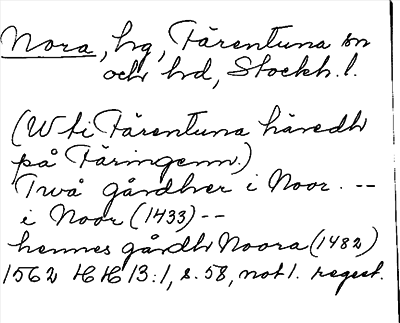 Nora, hg, Färentuna sn
och hd, Stockh. l.
(W ti Färentuna häredh
på Färingenn.)
Twå gårdher i Noor. --
i Noor (1433) --
hennes gårdh Noora (1482)
1562 HH 13:1, s. 58, not 1. regest.